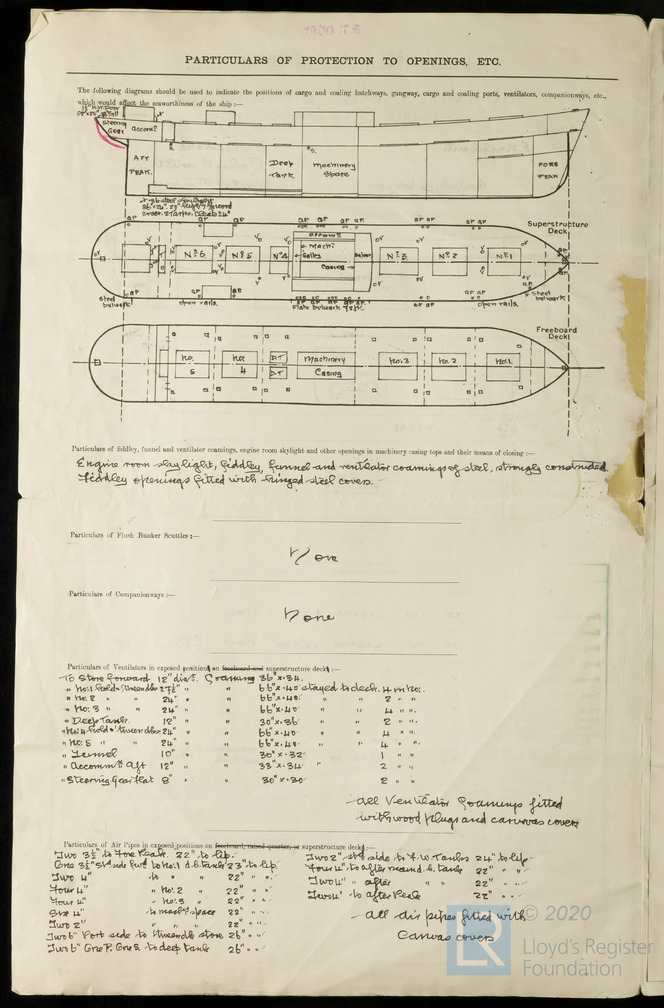 PARTICULARS OF PROTECTION TO OPENINGS, ETC.
The following diagrams should be used to indicate the positions of cargo and coaling hatchways, gangway, cargo and coaling ports, ventilators, companionways, etc.,
which would affect the seaworthiness of the ship :—
Steering Gear
Accomn
AFT PEAK.
Deep Tank
Machinery Space
FORE PEAK
Superstructure Deck.
No 6
No 5
No 4
Machy
Galley
Casing
No 3
No 2
No 1
steel bulwark
open rails.
Plate bulwark
open rails.
Steel bulwark
Freeboard Deck
No. 5
No. 4
DT
DT
Machinery Casing
No. 3
No. 2
No. 1
Particulars of fiddley, funnel and ventilator coamings, engine room skylight and other openings in machinery casing tops and their means of closing :—
Engine room skylight, fiddley, funnel and ventilator coamings of steel, strongly constructed.
Fiddley openings fitted with hinged steel covers.
Particulars of Flush Bunker Scuttles :—
None
Particulars of Companionways :—
None
Particulars of Ventilators in exposed positions on freeboard and superstructure decks :—
To Store forward 12" diar. Coaming 36" x .34.
" No: 1 hold & tweendks 27½" " " 66" x .40 stayed to deck. 4 in No:.
" No. 2 " " 24" " " 66" x .40 " " 2 " ".
" No: 3 " " 24" " " 66" x .40 " " 4 " ".
" Deep Tank 12" " " 30" x .36 2 " ".
" No: 4 hold & tweendks 24" " " 66" x .40 " " 4 " ".
" No: 5 " " 24" " " 66" x .40 " " 4 " ".
" Tunnel 10" " " 30" x .32 1 " "
" Accommn Aft 12" " " 33" x .34 2 " "
" Steering Gear flat 8" " " 30" x .30 2 " "
All Ventilator Coamings fitted
with wood plugs and canvas covers
Particulars of Air Pipes in exposed positions on freeboard, raised quarter, or superstructure decks :—
Two 3½" to Fore Peak. 22" to lip.
One 3½" Stbd side fwd to No: 1 d.b. tank 23" to lip.
Two 4" to " " 22" " "
Four 4" " No. 2 " 22" " "
Four 4" " No: 3 " 22" " "
to machy space 22" " "
Two 2" " " " 22" " "
Two 6" Port side to tweendk store 26" " "
Two 6" One P. One S. to deep tank 26" " "
Two 2" stbd side to F.W. Tanks 24" to lip
Four 4" to after mach d. b. tank 22" " "
Two 4" " after " 22" " "
to After Peak 22" " "
All air pipes fitted with
Canvas covers
© 2020
LR
Lloyd's Register
Foundation